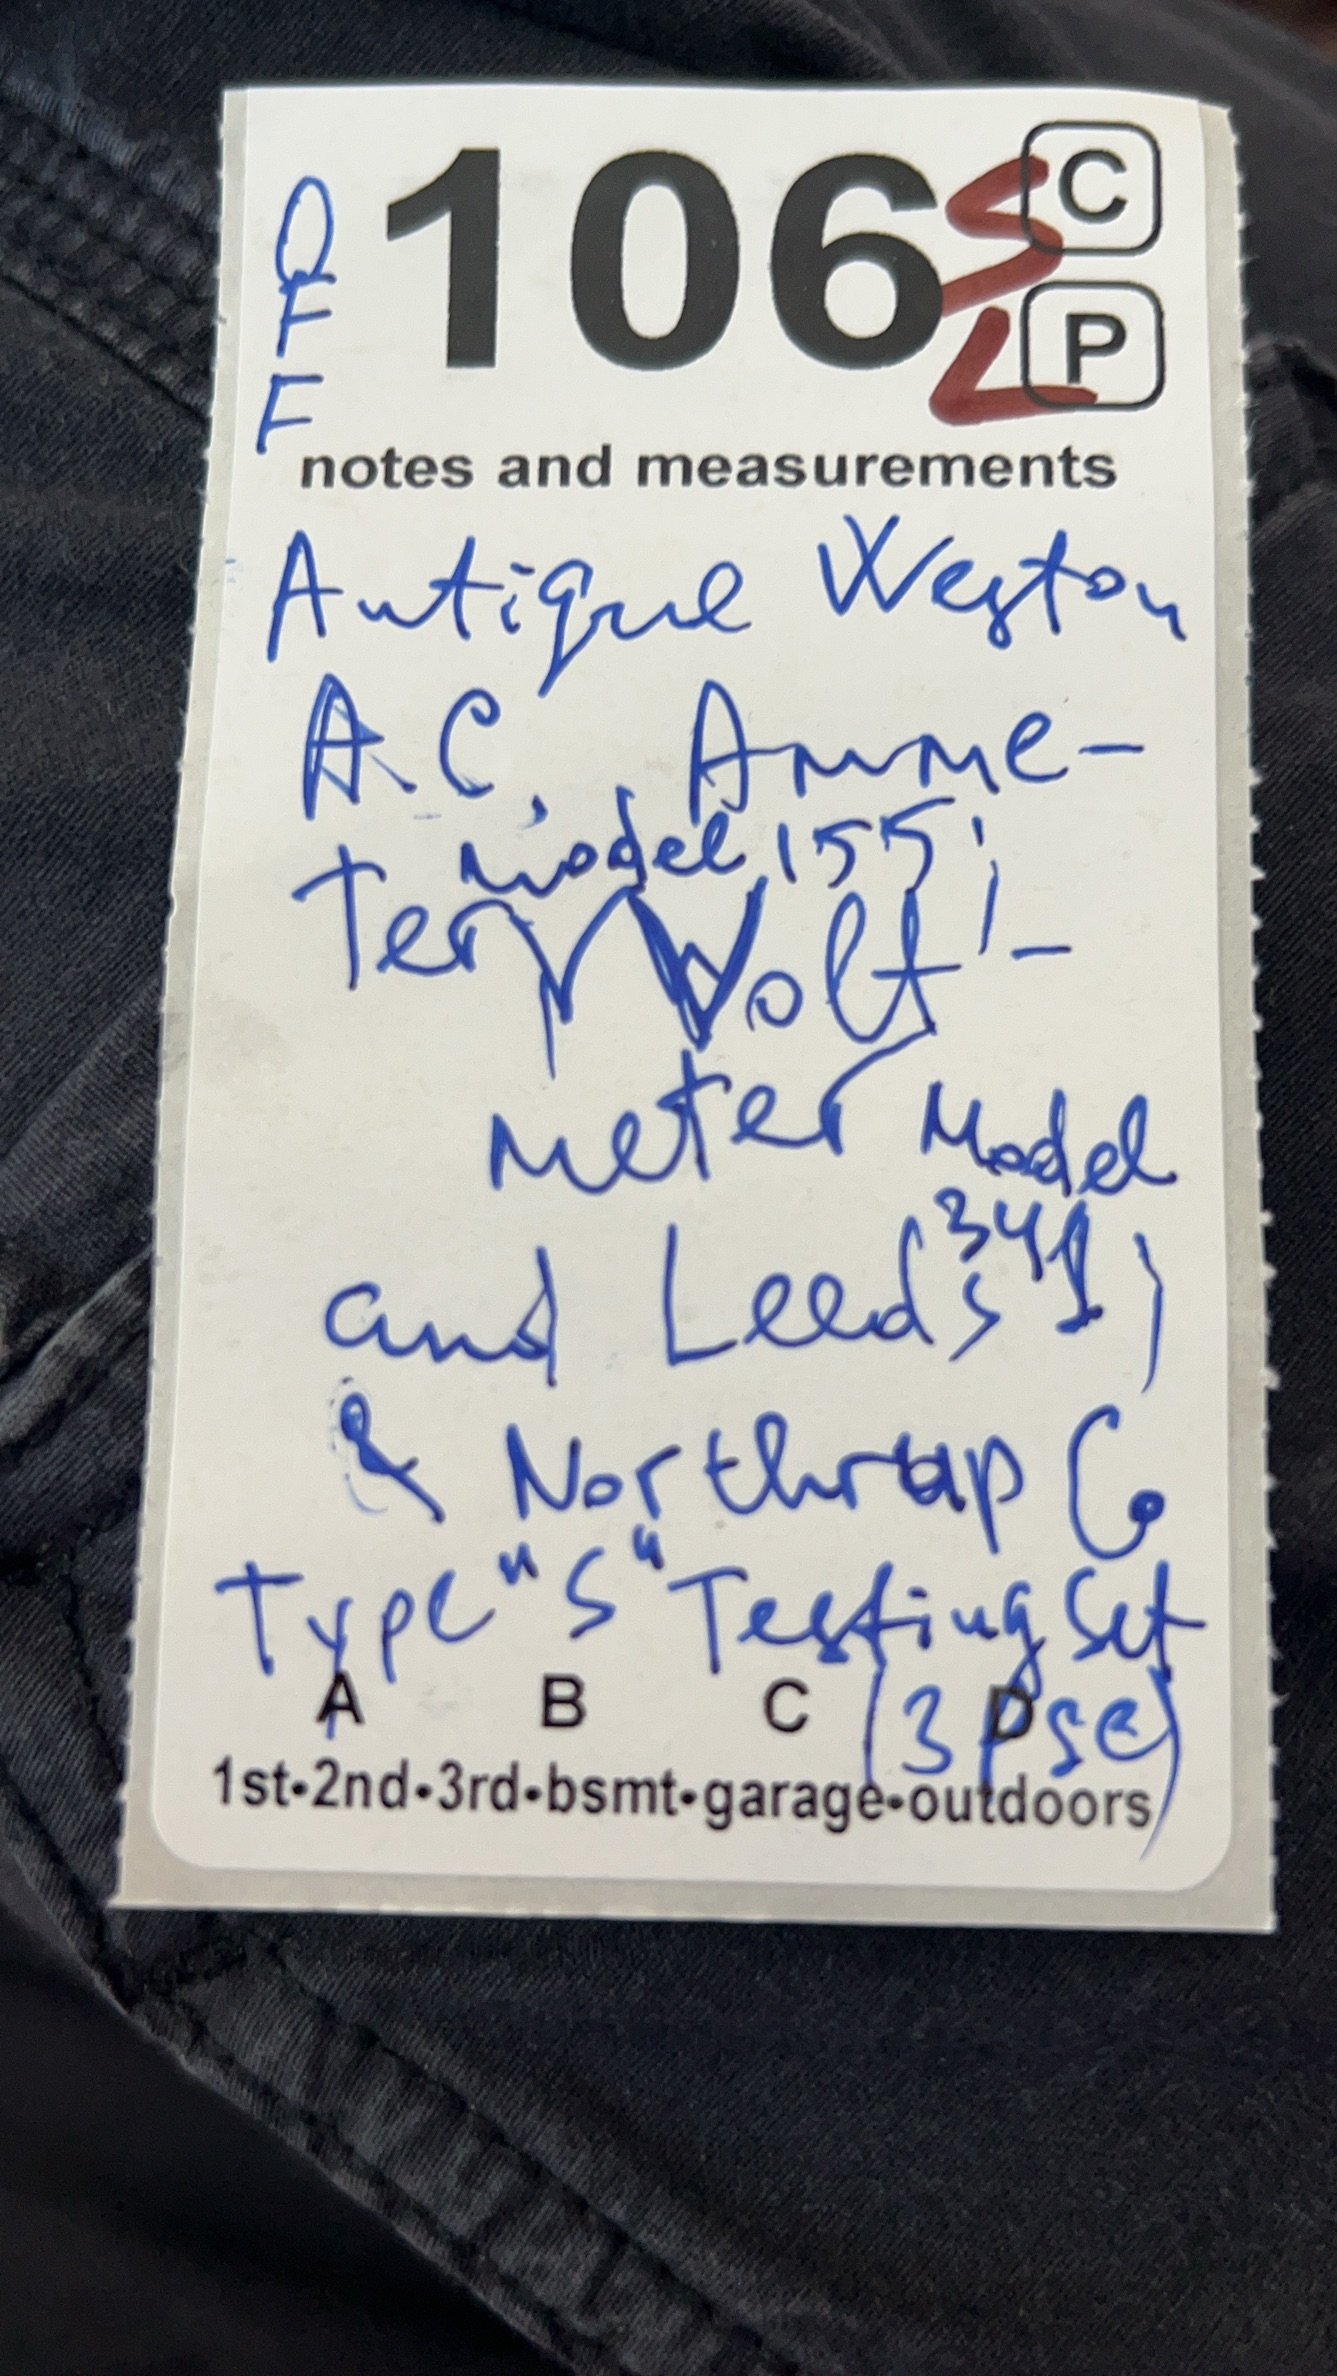 106
C
P
S
L
O
F
F
notes and measurements
Antique Weston
A.C. Amme-
Model 155;
Ter, Volt-
meter Model
341)
and Leeds
& Northrup Co
Type "S" Testing Set
(3 pse)
A B C D
1st•2nd•3rd•bsmt•garage•outdoors